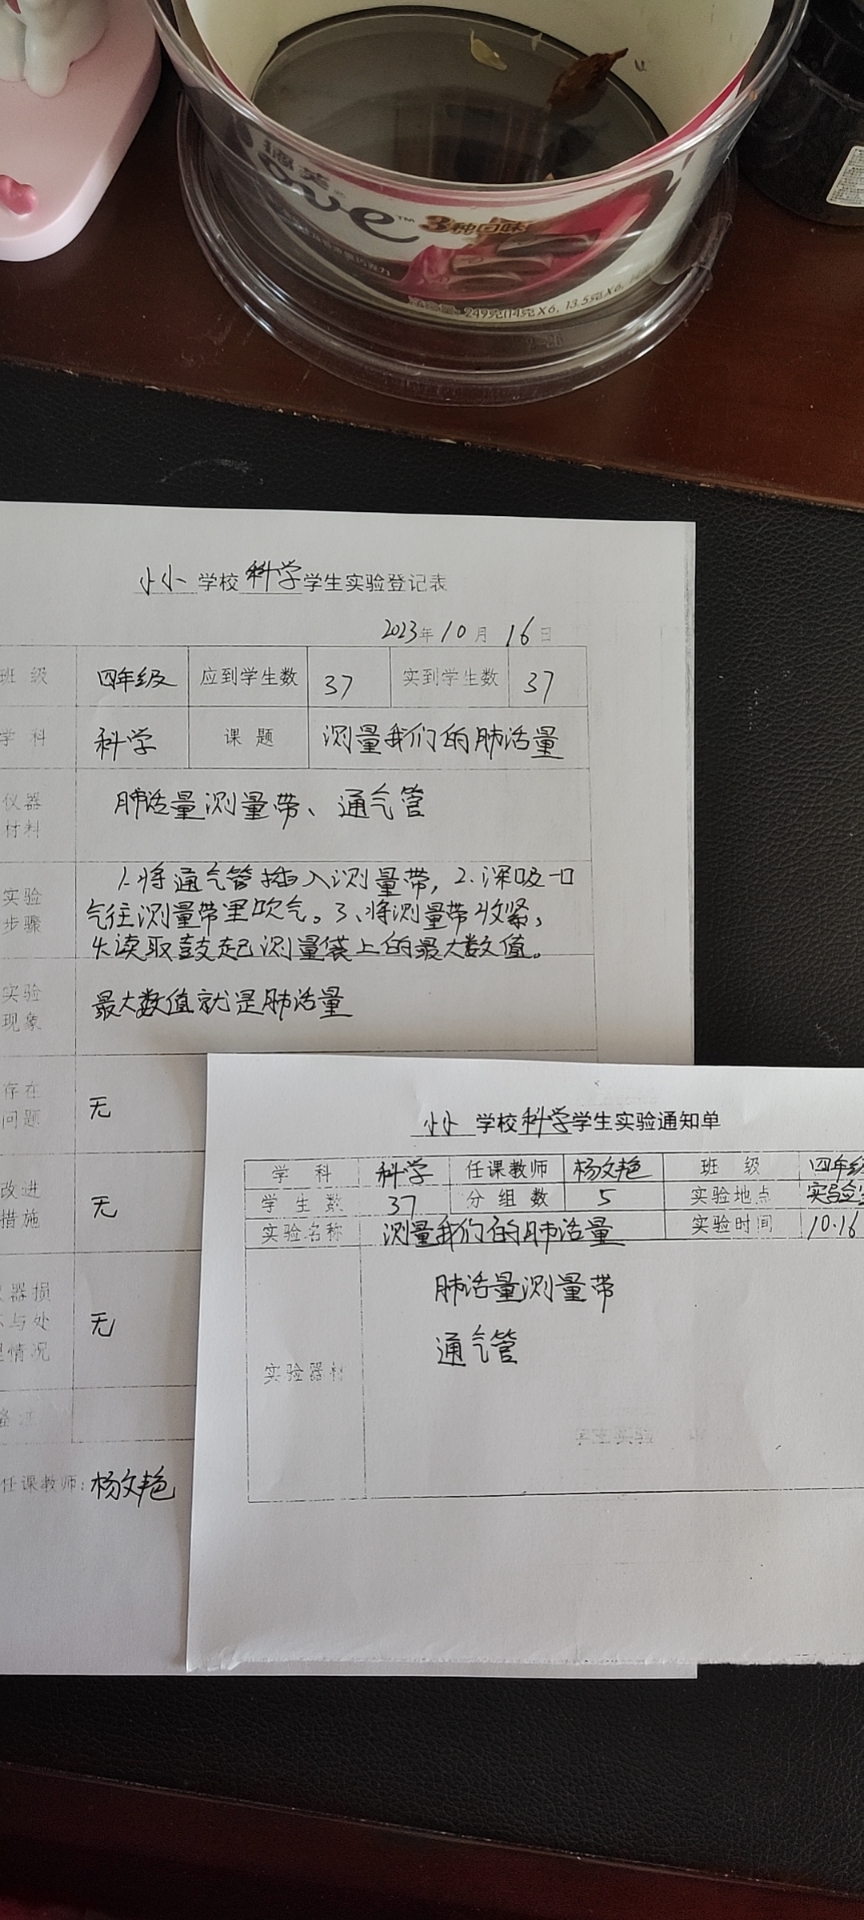 ove™ 3种口味
249克(14克X6, 13.5克X6,
小小 学校 科学 学生实验登记表
2023年 10月 16日
班 级 四年级 应到学生数 37 实到学生数 37
学 科 科学 课 题 测量我们的肺活量
仪器
材料
肺活量测量带、通气管
实验
步骤
1.将通气管插入测量带，2.深吸一口
气往测量带里吹气。3、将测量带收紧，
4.读取鼓起测量袋上的最大数值。
实验
现象
最大数值就是肺活量
存在
问题
无
改进
措施
无
器损
与处
情况
无
任课教师：杨文艳
小小 学校科学学生实验通知单
学 科 科学 任课教师 杨文艳 班 级 四年级
学生数 37 分组数 5 实验地点 实验室
实验名称 测量我们的肺活量 实验时间 10.16
实验器材
肺活量测量带
通气管